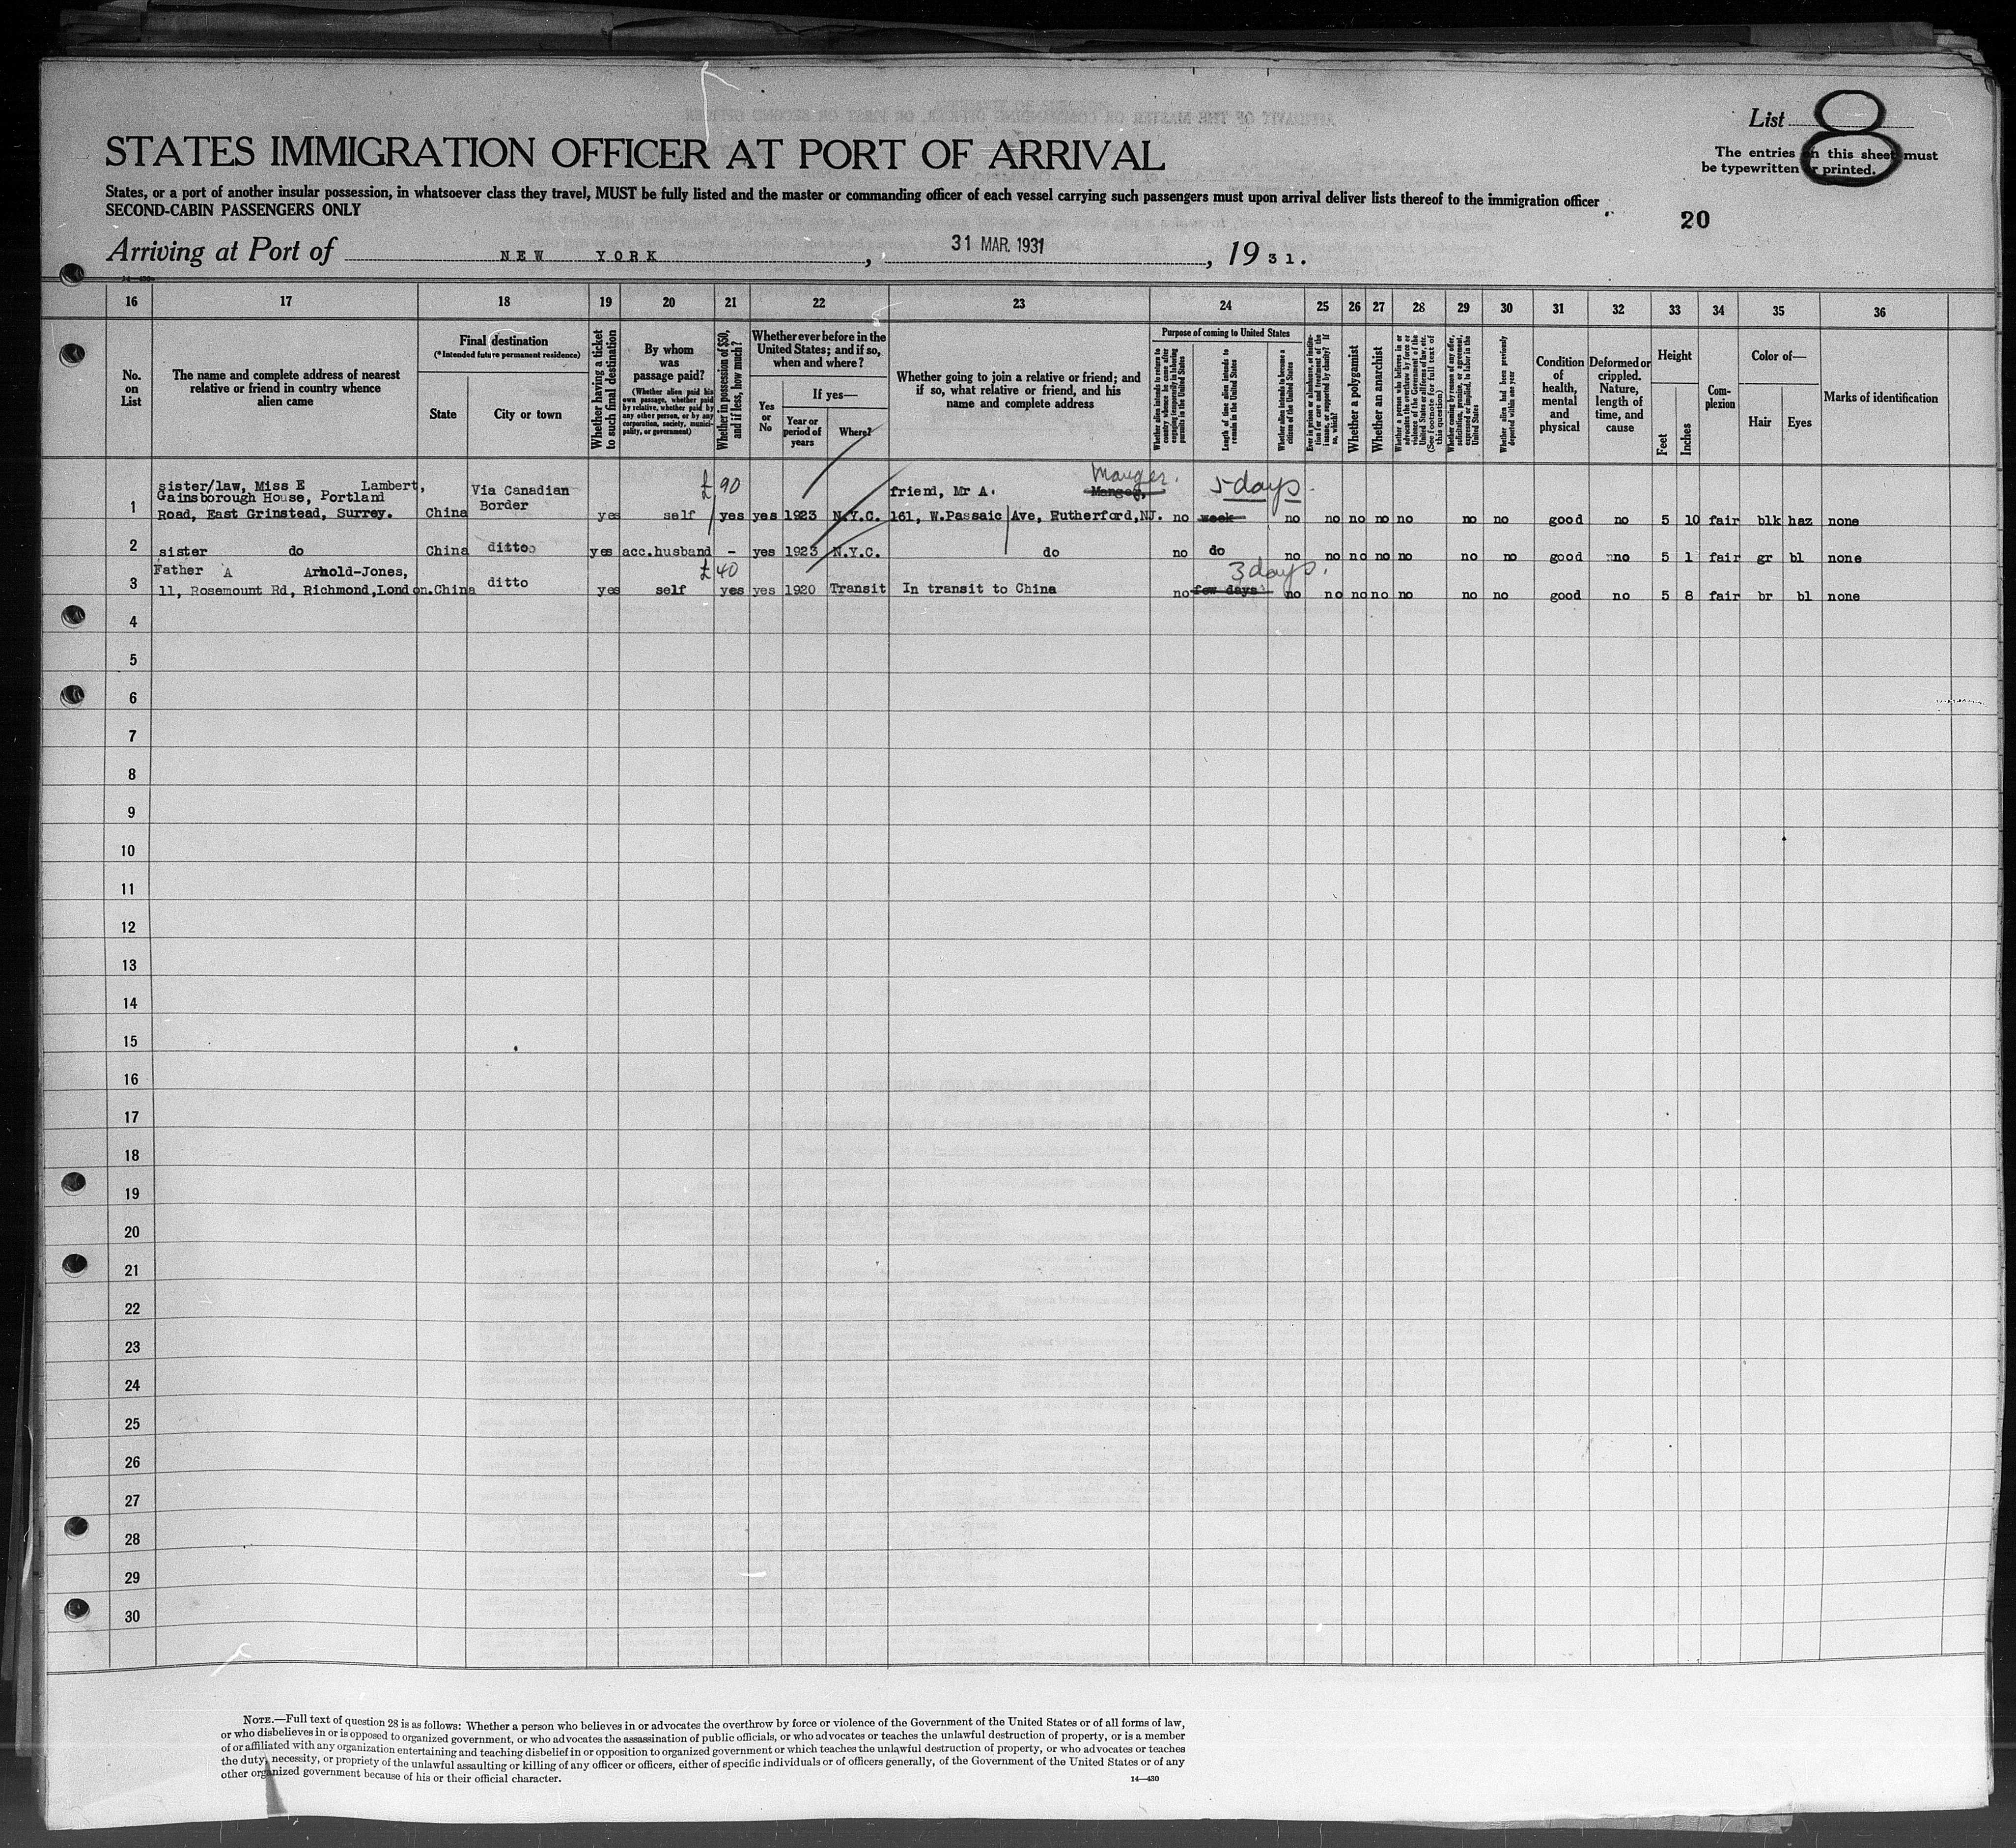 STATES IMMIGRATION OFFICER AT PORT OF ARRIVAL
List 8
The entries on this sheet must
be typewritten or printed.
States, or a port of another insular possession, in whatsoever class they travel, MUST be fully listed and the master or commanding officer of each vessel carrying such passengers must upon arrival deliver lists thereof to the immigration officer
SECOND-CABIN PASSENGERS ONLY
20
Arriving at Port of NEW YORK, 31 MAR. 1931, 1931.
16 17 18 19 20 21 22 23 24 25 26 27 28 29 30 31 32 33 34 35 36
No. on List
The name and complete address of nearest relative or friend in country whence alien came
Final destination
(*Intended future permanent residence)
State
City or town
Whether having a ticket to such final destination
By whom was passage paid?
(Whether alien paid his own passage, whether paid by relative, whether paid by any other person, or by any corporation, society, municipality, or government)
Whether in possession of $50, and if less, how much?
Whether ever before in the United States; and if so, when and where?
Yes or No
If yes—
Year or period of years
Where?
Whether going to join a relative or friend; and if so, what relative or friend, and his name and complete address
Purpose of coming to United States
Whether alien intends to return to country whence he came after engaging temporarily in laboring pursuits in the United States
Length of time alien intends to remain in the United States
Whether alien intends to become a citizen of the United States
Ever in prison or almshouse, or institution for care and treatment of the insane, or supported by charity? If so, which?
Whether a polygamist
Whether an anarchist
Whether a person who believes in or advocates the overthrow by force or violence of the Government of the United States or all forms of law, etc. (See footnote for full text of this question.)
Whether coming by reason of any offer, solicitation, promise, or agreement, expressed or implied, to labor in the United States
Whether alien had been previously deported within one year
Condition of health, mental and physical
Deformed or crippled. Nature, length of time, and cause
Height
Feet
Inches
Complexion
Color of—
Hair
Eyes
Marks of identification
£90 Mauger. 5 days
1 sister/law, Miss E Lambert, Via Canadian friend, Mr A.
Gainsborough House, Portland Border
Road, East Grinstead, Surrey. China yes self yes yes 1923 N.Y.C. 161, W.Passaic Ave, Rutherford,NJ. no week no no no no no no no good no 5 10 fair blk haz none
2 sister do China ditto yes acc.husband - yes 1923 N.Y.C. do no do no no no no no no no good no 5 1 fair gr bl none
£40 3 days.
3 Father A Arnold-Jones, ditto
11, Rosemount Rd, Richmond,London.China yes self yes yes 1920 Transit In transit to China no few days no no no no no no no good no 5 8 fair br bl none
4
5
6
7
8
9
10
11
12
13
14
15
16
17
18
19
20
21
22
23
24
25
26
27
28
29
30
NOTE.—Full text of question 28 is as follows: Whether a person who believes in or advocates the overthrow by force or violence of the Government of the United States or of all forms of law,
or who disbelieves in or is opposed to organized government, or who advocates the assassination of public officials, or who advocates or teaches the unlawful destruction of property, or is a member
of or affiliated with any organization entertaining and teaching disbelief in or opposition to organized government or which teaches the unlawful destruction of property, or who advocates or teaches
the duty, necessity, or propriety of the unlawful assaulting or killing of any officer or officers, either of specific individuals or of officers generally, of the Government of the United States or of any
other organized government because of his or their official character.
14—430